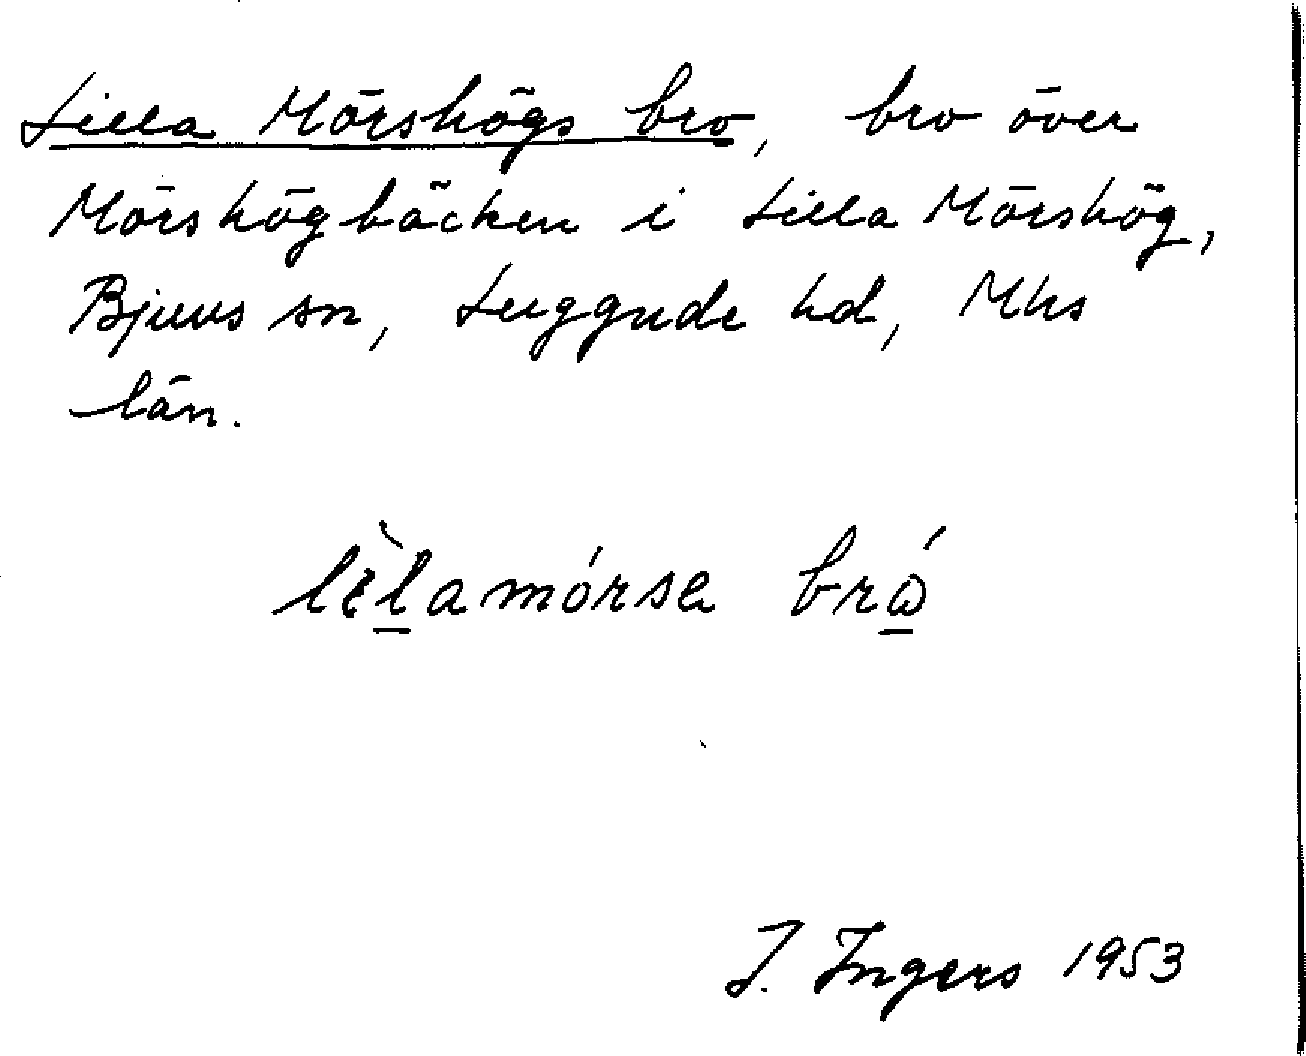 Lilla Mörshögs bro, bro över
Mörshögbäcken i Lilla Mörshög,
Bjuvs sn, Luggude hd, Mhs
län.
lèlamórsa brá
I. Ingers 1953